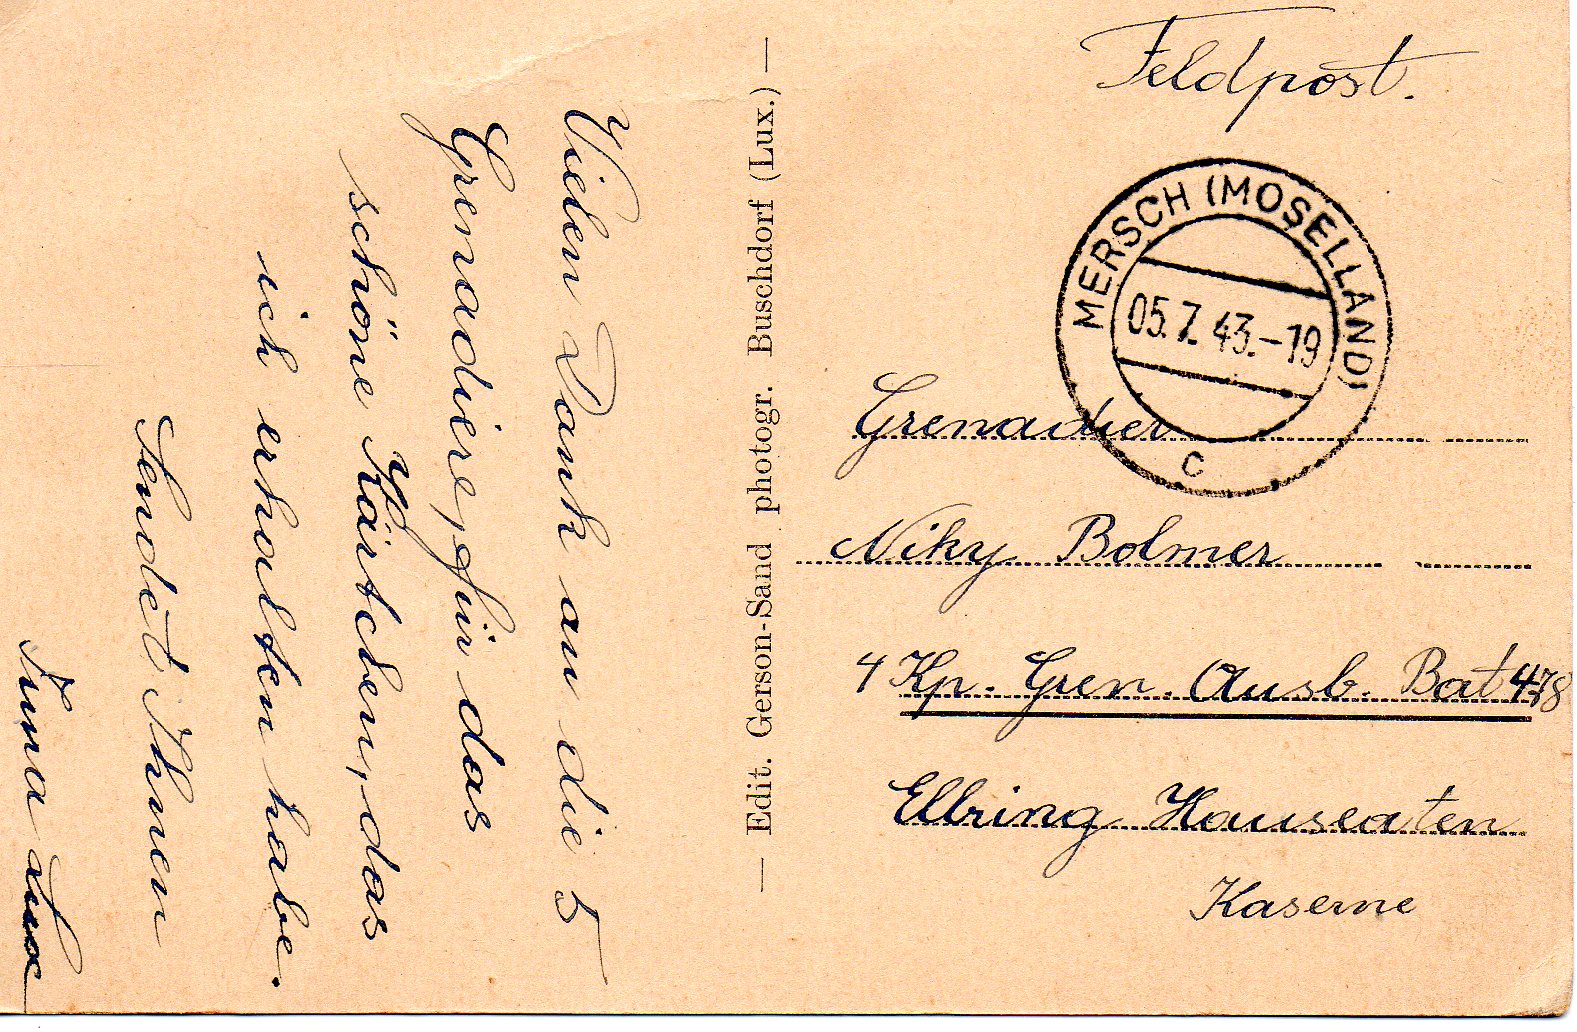 Vielen Dank an die 5
Grenadiere, für das
schöne Kärtchen, das
ich erhalten habe.
Sendet Ihnen
— Edit. Gerson-Sand photogr. Buschdorf (Lux.) —
Feldpost.
MERSCH (MOSELLAND)
05.7.43.-19
c
Grenadier
Niky Bolmer
4 Kp. Gren. Ausb. Bat 478
Elbring Hauseaten
Kaserne